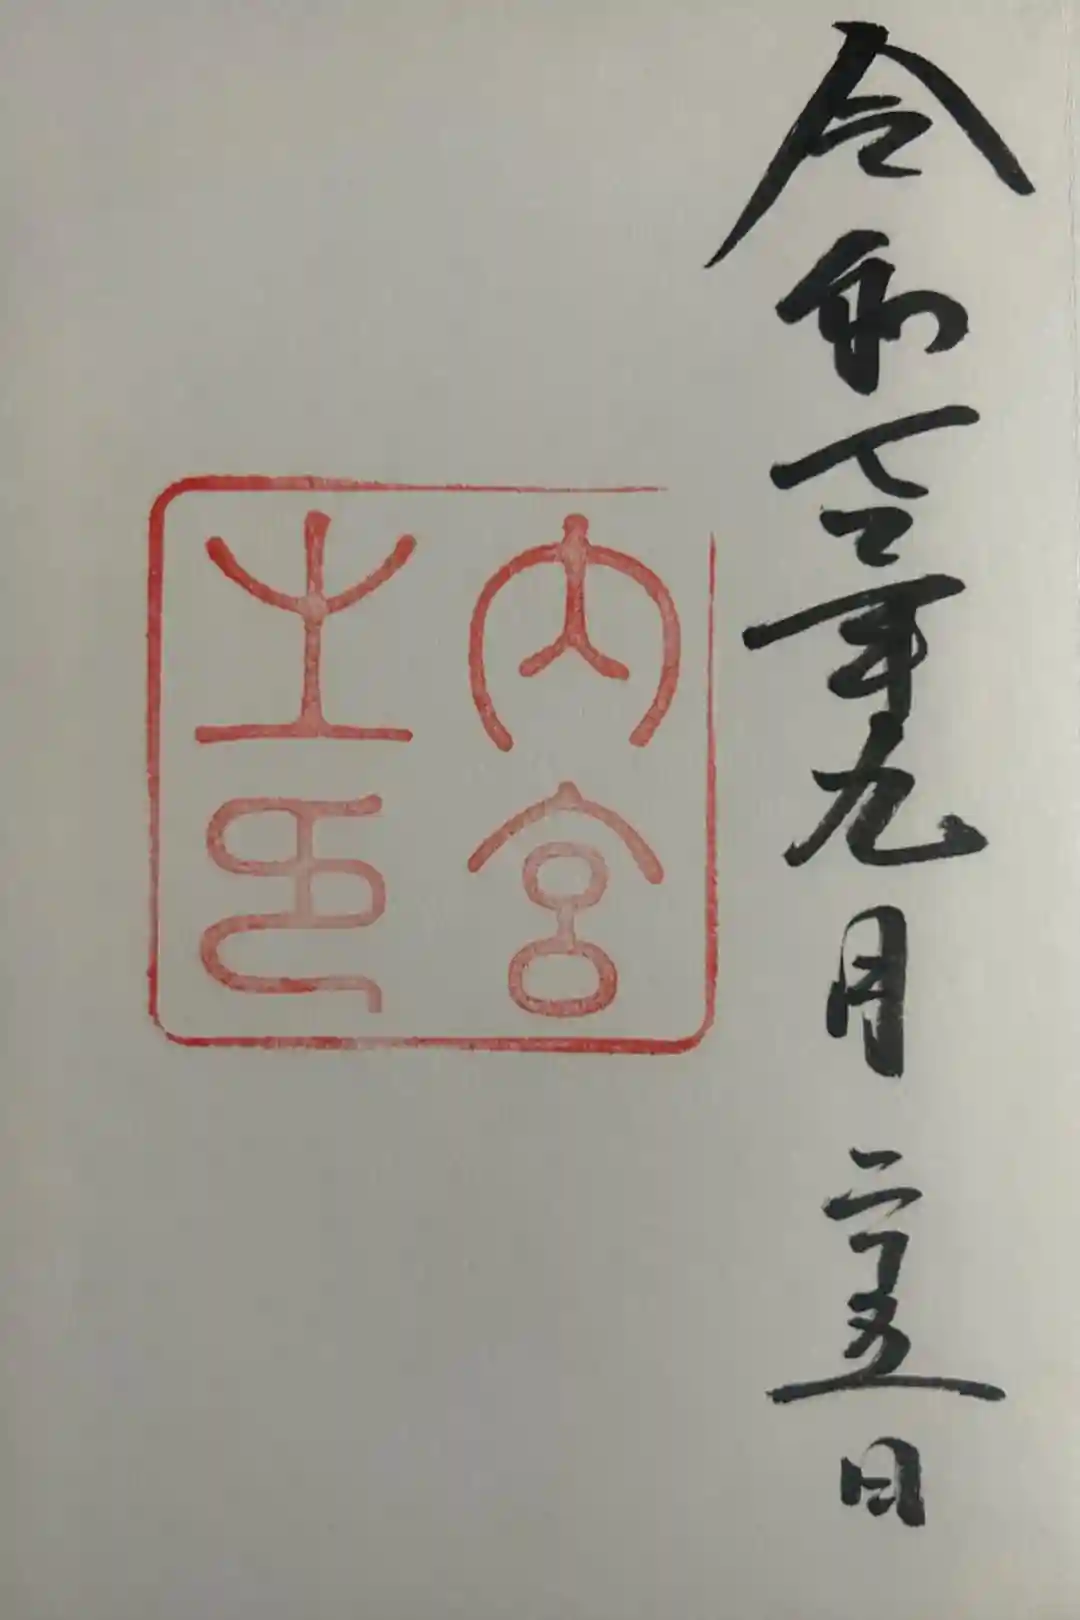 令和七年九月二五日
内宮
之印